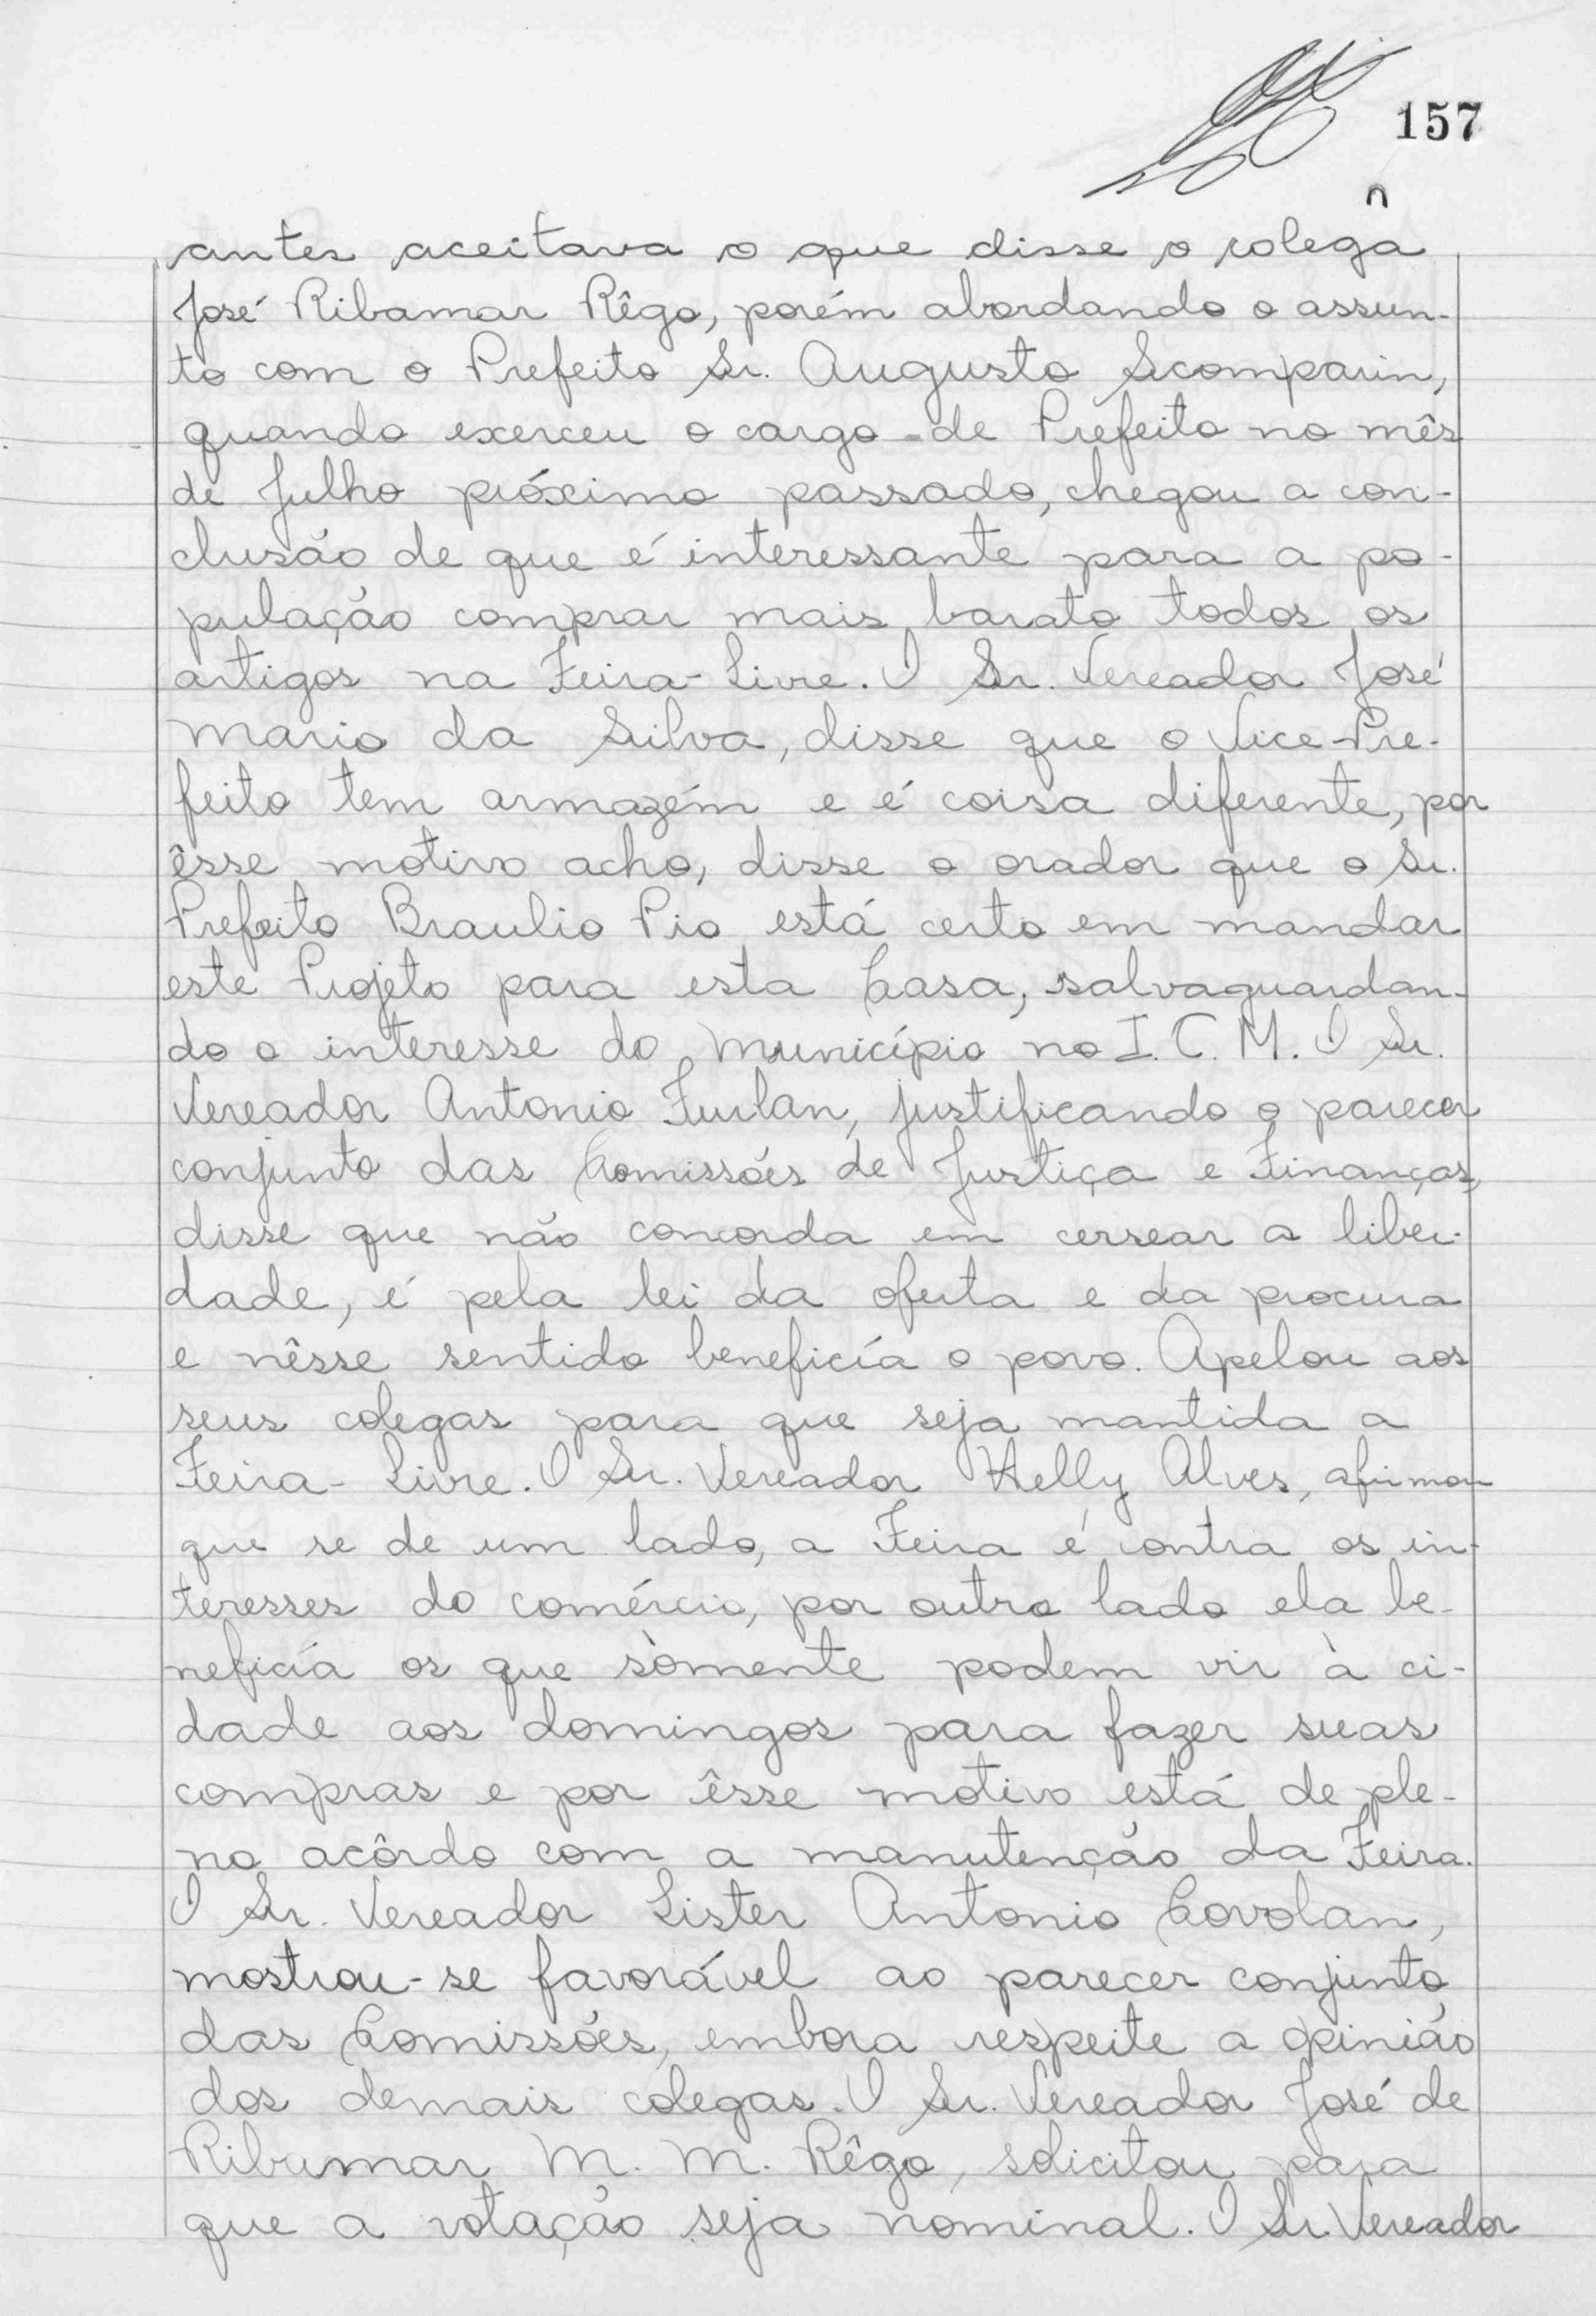 157
antes aceitava o que disse o colega
José Ribamar Rêgo, porém abordando o assun-
to com o Prefeito Sr. Augusto Scomparin,
quando exerceu o cargo de Prefeito no mês
de Julho próximo passado, chegou a con-
clusão de que é interessante para a po-
pulação comprar mais barato todos os
artigos na Feira-Livre. O Sr. Vereador José
Mario da Silva, disse que o Vice-Pre-
feito tem armazém e é coisa diferente, por
êsse motivo acho, disse o orador que o Sr.
Prefeito Braulio Pio está certo em mandar
este Projeto para esta Casa, salvaguardan-
do o interesse do Município no I.C.M. O Sr.
Vereador Antonio Furlan, justificando o parecer
conjunto das Comissões de Justiça e Finanças,
disse que não concorda em cersear a liber-
dade, é pela lei da oferta e da procura
e nêsse sentido beneficía o povo. Apelou aos
seus colegas para que seja mantida a
Feira-Livre. O Sr. Vereador Helly Alves, afirmou
que se de um lado, a Feira é contra os in-
teresses do comércio, por outro lado ela be-
neficía os que sòmente podem vir à ci-
dade aos domingos para fazer suas
compras e por êsse motivo está de ple-
no acôrdo com a manutenção da Feira.
O Sr. Vereador Lister Antonio Covolan,
mostrou-se favorável ao parecer conjunto
das Comissões, embora respeite a opinião
dos demais colegas. O Sr. Vereador José de
Ribamar M. M. Rêgo, solicitou para
que a votação seja nominal. O Sr. Vereador